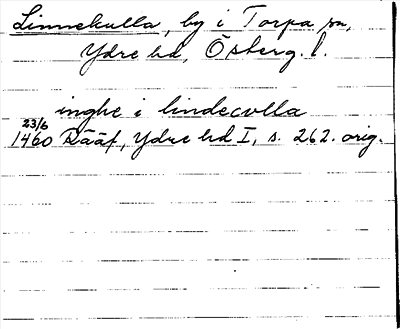 Linnekulla, by i Torpa sn,
Ydre hd, Österg. l.
inghe i lindecolla
23/6
1460 Rääf, Ydre hd I, s. 262. orig.